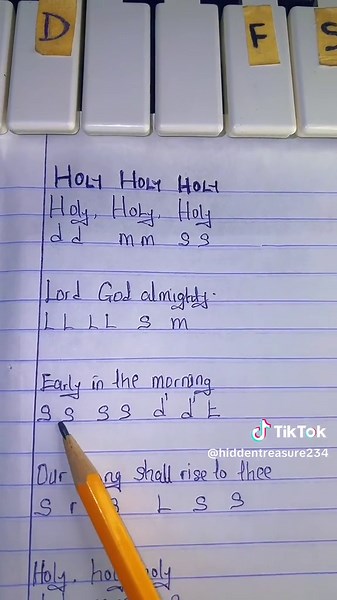 D F S
HOLY HOLY HOLY
Holy, Holy, Holy
d d m m s s
Lord God almighty.
L L L L s m
Early in the morning
s s s s d' d' t
TikTok
@hiddentreasure234
Our shall rise to thee
s r L s s
Holy, holy